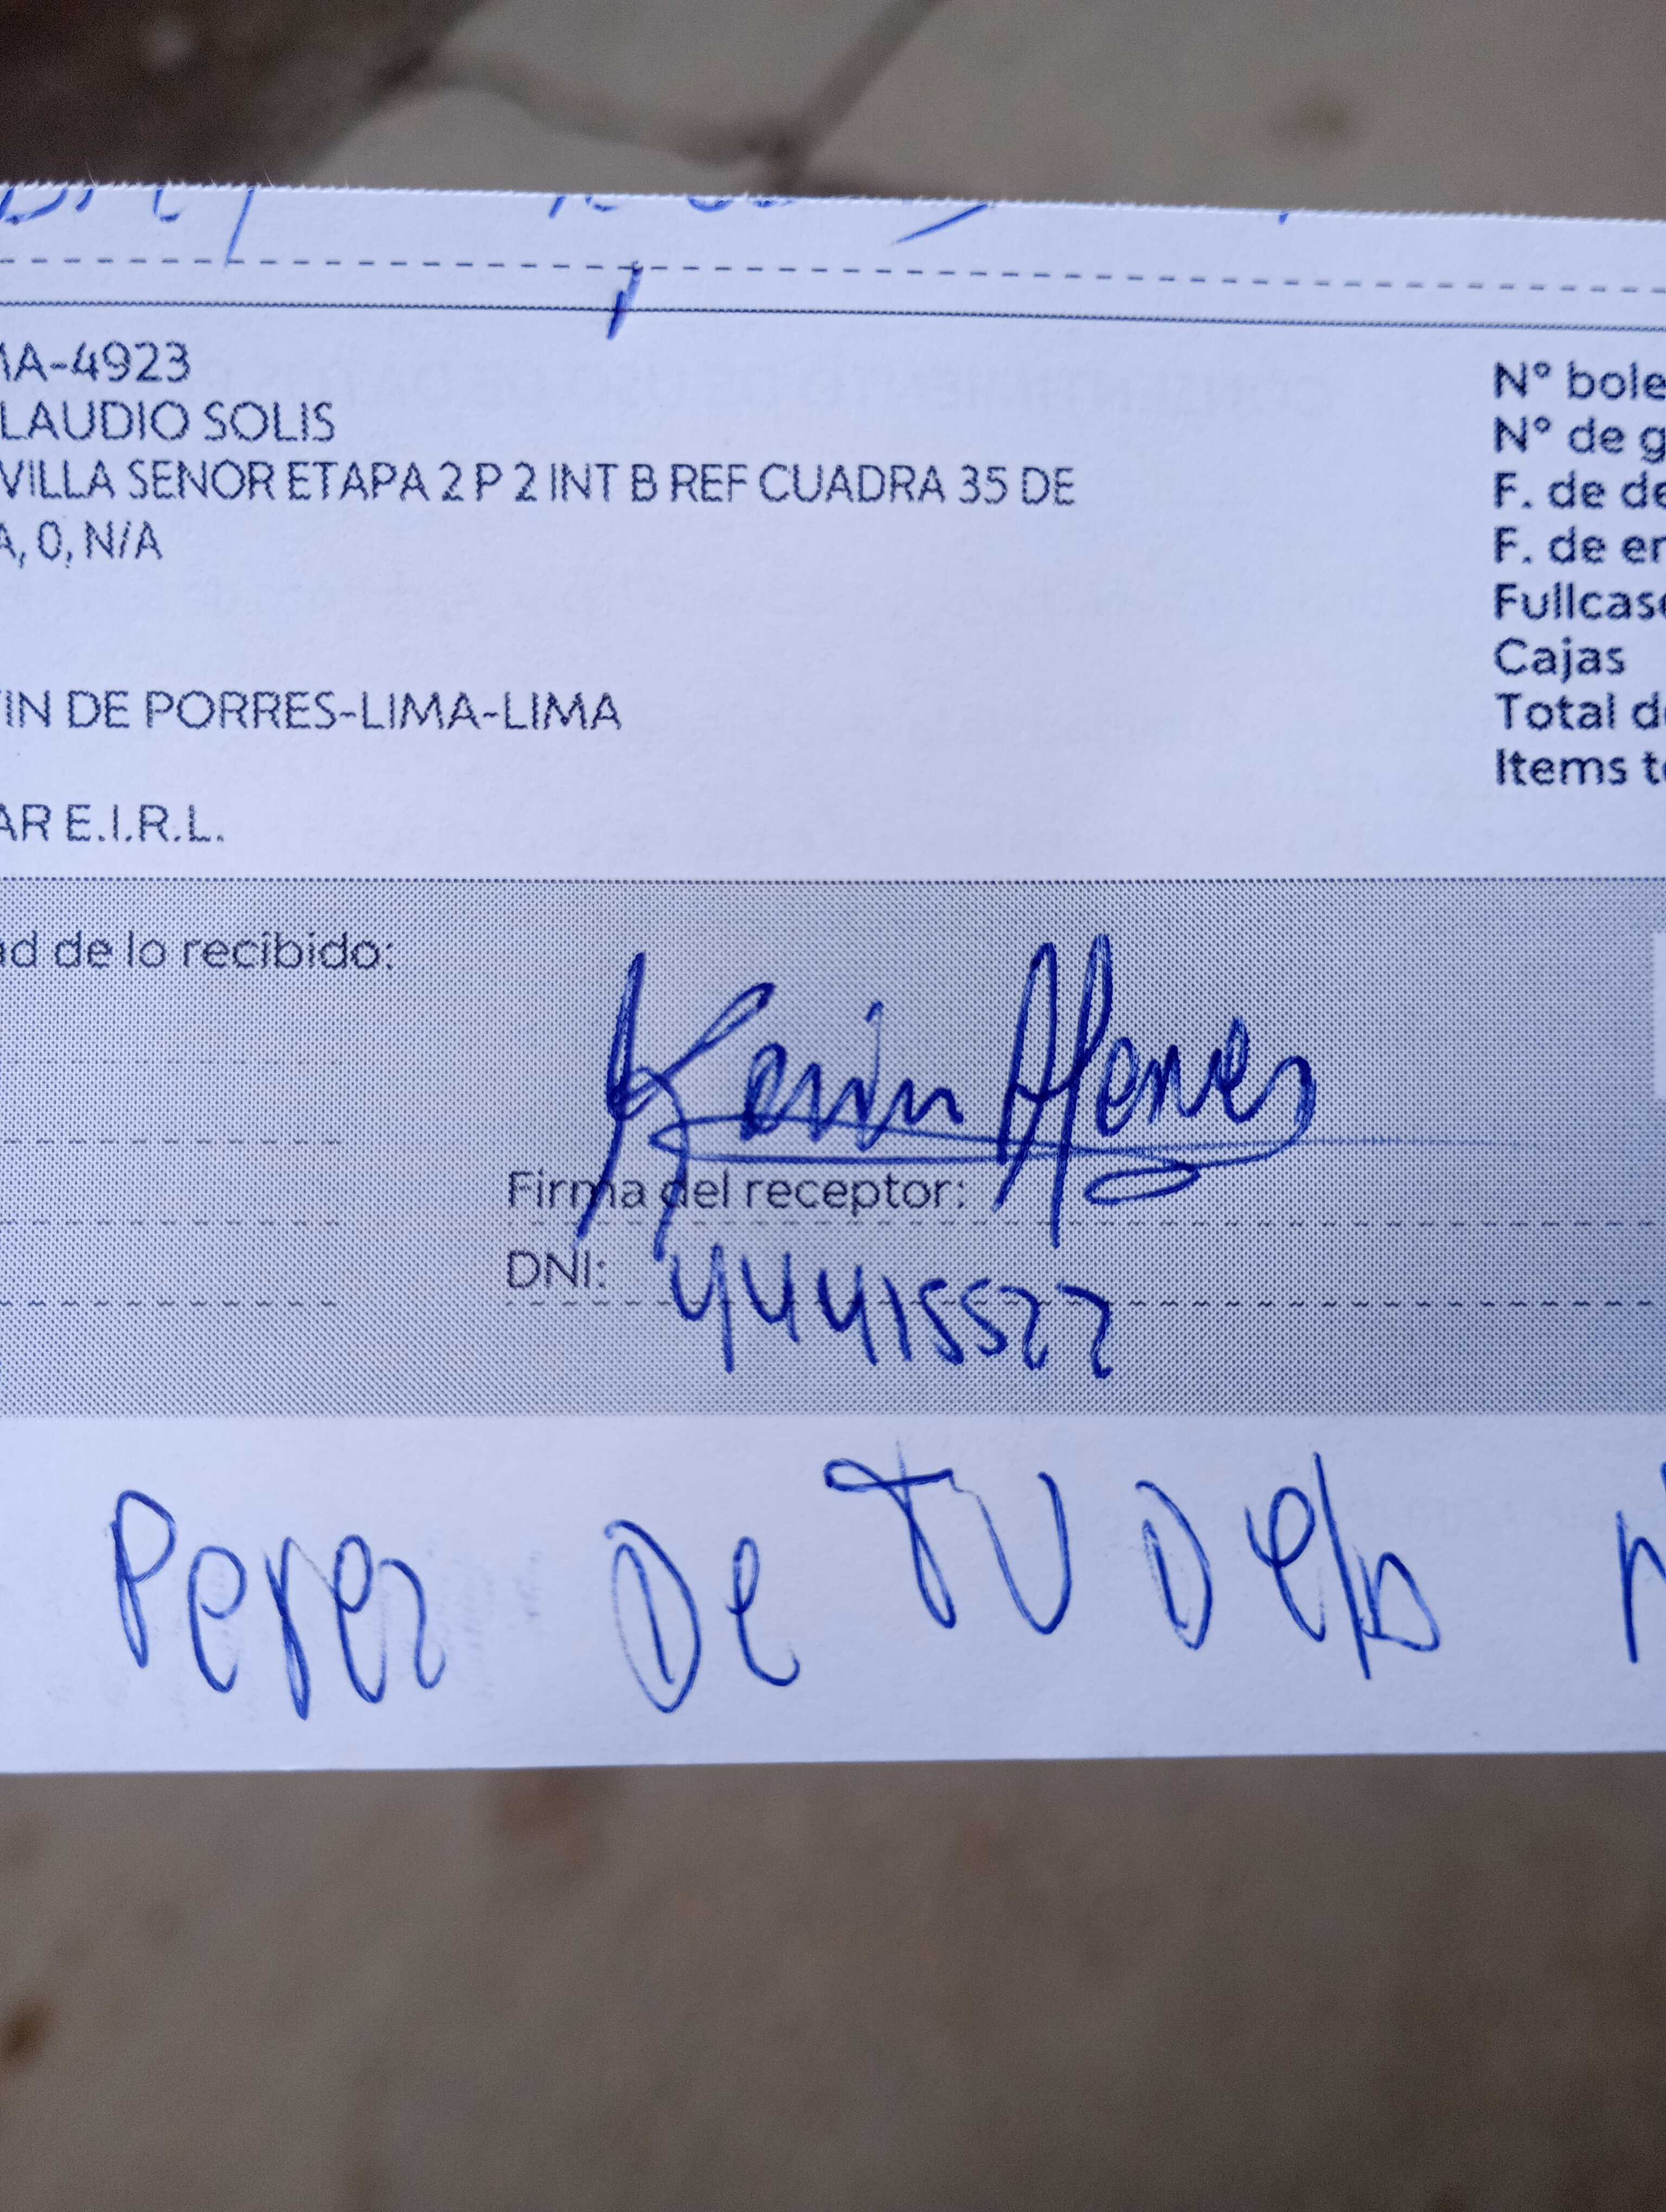 MA-4923
LAUDIO SOLIS
VILLA SENOR ETAPA 2 P 2 INT B REF CUADRA 35 DE
A, 0, N/A
TIN DE PORRES-LIMA-LIMA
AR E.I.R.L.
N° bole
N° de g
F. de de
F. de en
Fullcase
Cajas
Total de
Items to
ad de lo recibido:
Kevin
Firma del receptor:
DNI: 44415522
Perez De TUDela